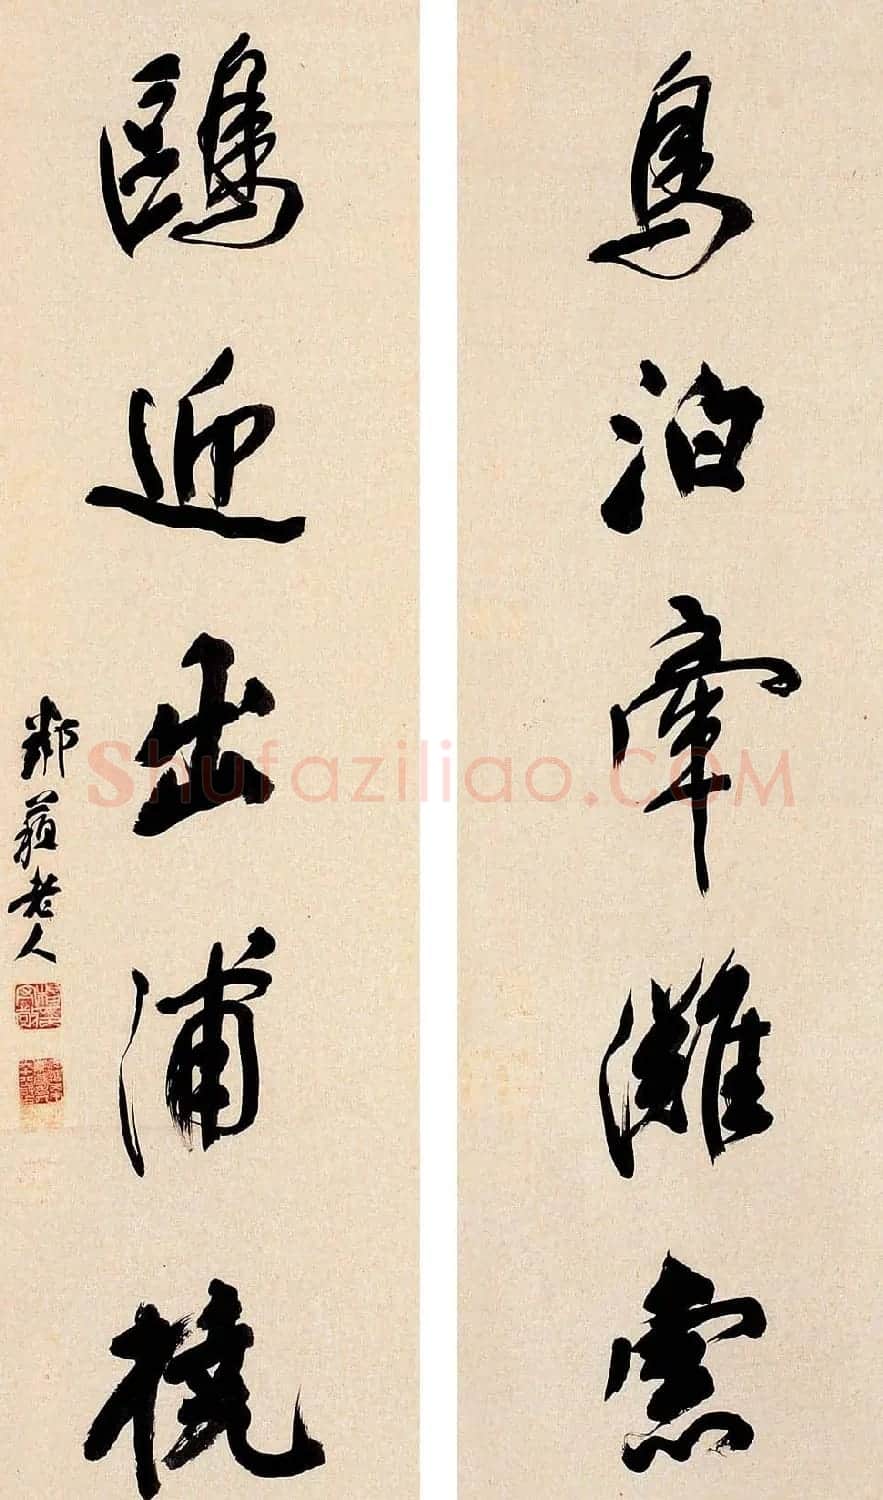 鳥泊牽灘索
鷗迎出浦橈
鄰蘇老人
Shufaziliao.COM